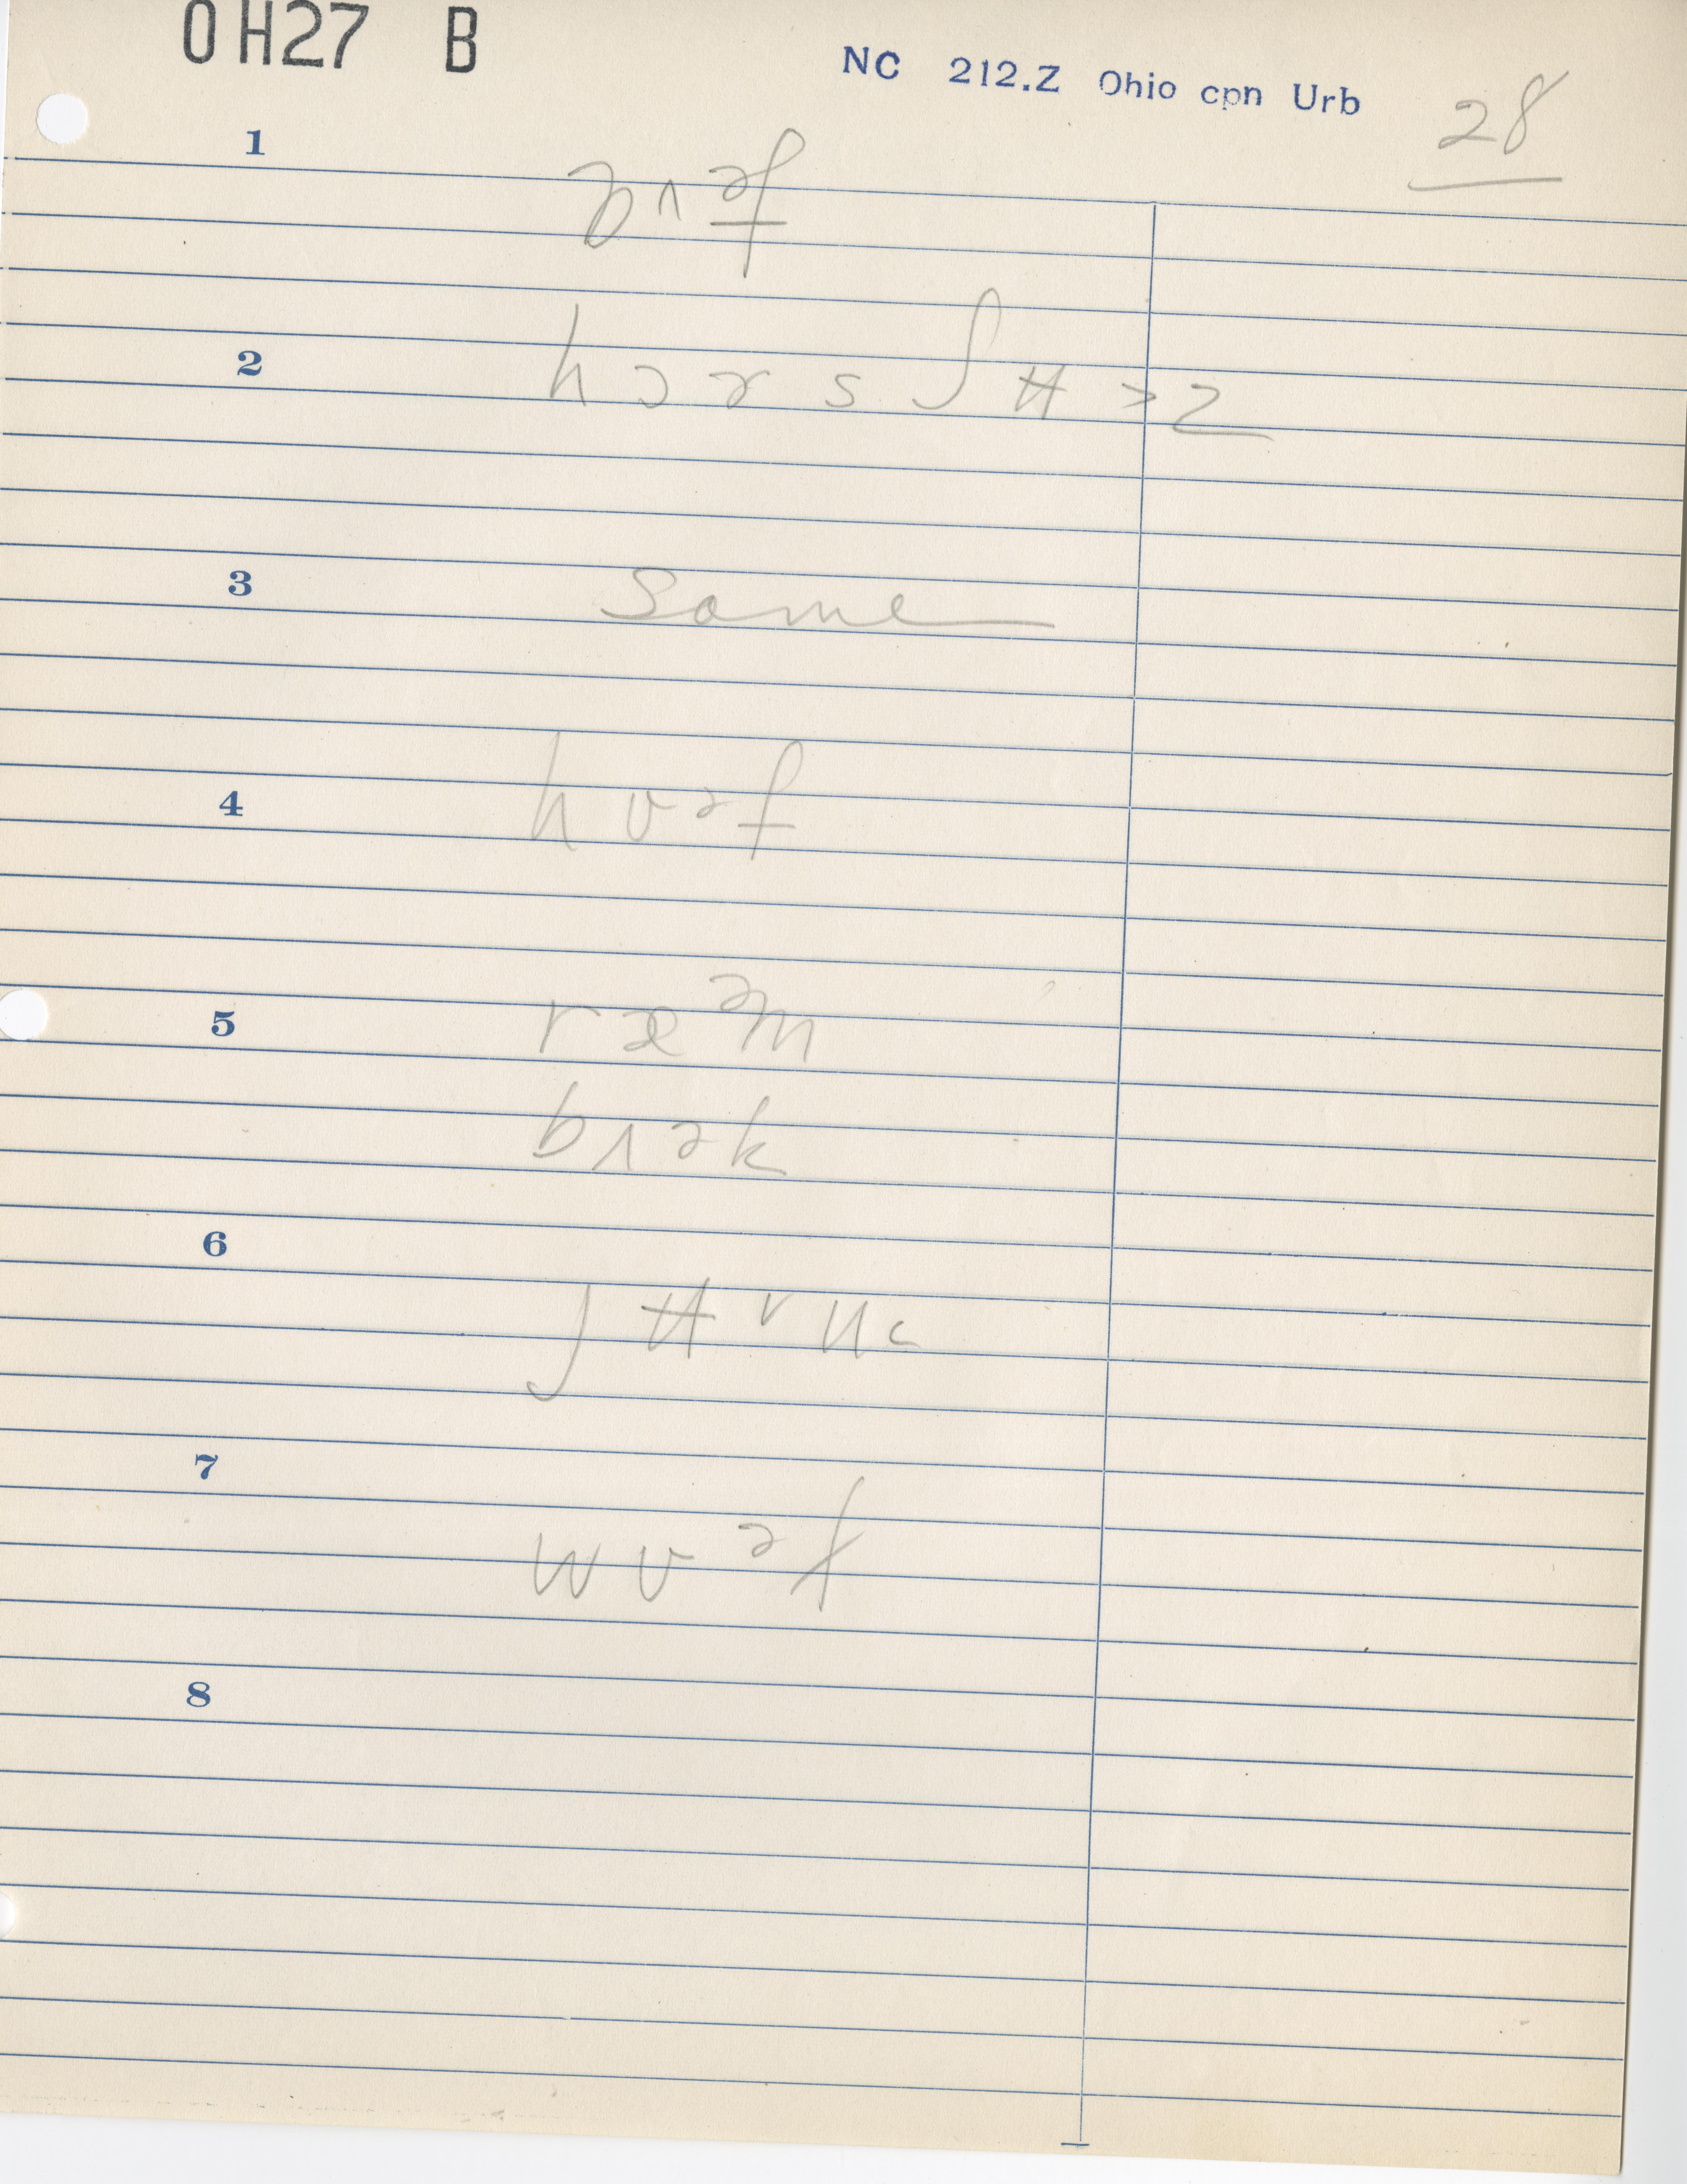 OH27 B
NC 212.Z Ohio cpn Urb
28
1
rʌəf
2
hɔɚsʃʉ>z
3
Same
4
hʊəf
5
ræᵊm
bʌək
6
ʃʉvn
7
wʊᵊf
8